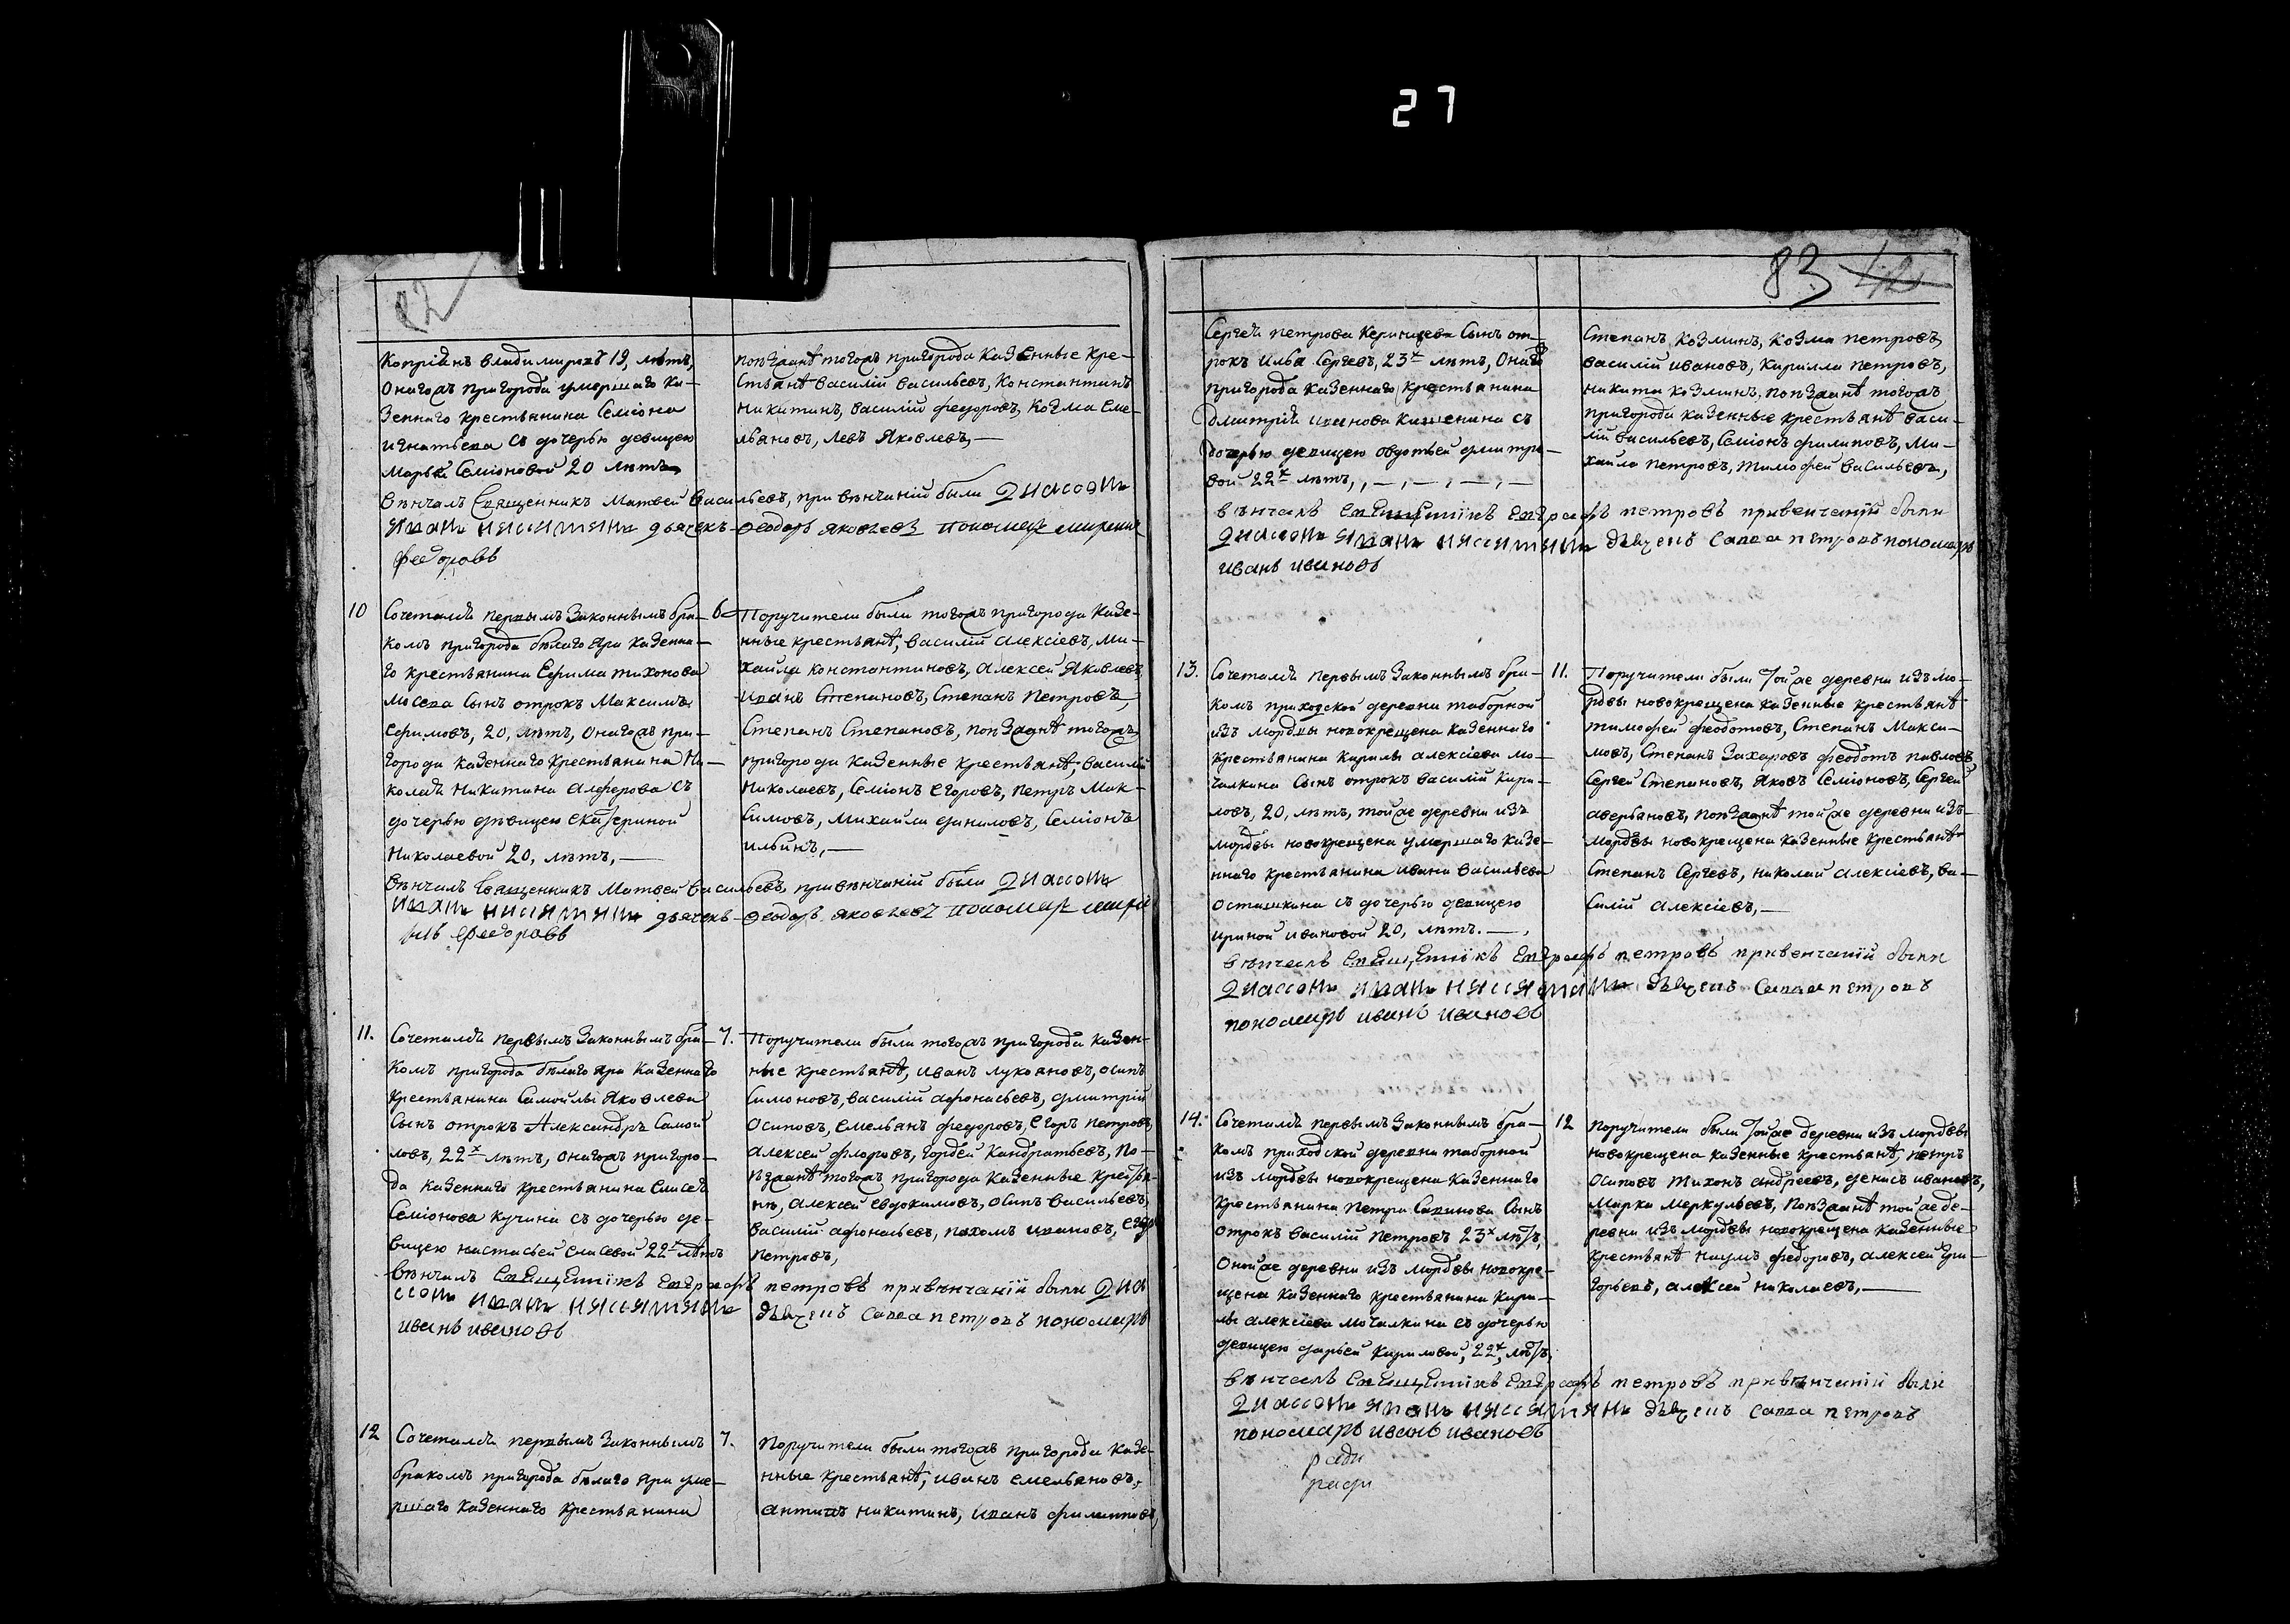 27
83 42
Копріянъ владимировъ 19, лѣтъ,
Онагожъ пригорода умершаго ка-
зеннаго крестьянина Семіона
игнатьева съ дочерью девицею
Марьей Семіоновой 20 лѣтъ
поѣзжанѣ тогожъ пригорода казенные кре-
стьянѣ василій васильевъ, Константинъ
никитинъ, василій федоровъ, козма еме-
льяновъ, левъ Яковлевъ, —
вѣнчалъ Священникъ Матвей васильевъ, при вѣнчаній были Диаконъ
дьячекъ Феодоръ яковлевъ пономарь
федоровъ
10 Сочетался первымъ законнымъ бра-
комъ пригорода бѣлаго Яра казенна-
го крестьянина Ефима тихонова
Мосева Сынъ отрокъ Максимъ
ефимовъ, 20, лѣтъ, онагожъ при-
города казеннаго крестьянина Ни-
колая никитина алферова съ
дочерью дѣвицею екатериной
николаевой 20, лѣтъ, —
6 Поручители были тогожъ пригорода казе-
нные крестьянѣ, василій алексіевъ, ми-
хайла константиновъ, алексей Яковлевъ
иванъ Степановъ, Степанъ Петровъ,
Степанъ Степановъ, поѣзжанѣ тогожъ
пригорода казенные крестьянѣ, василій
николаевъ, Семіонъ егоровъ, петръ мак-
симовъ, михайла даниловъ, Семіонъ
ильинъ, —
вѣнчалъ Священникъ Матвей васильевъ, при вѣнчаній были Диаконъ
дьячекъ Феодоръ яковлевъ пономарь
федоровъ
11. Сочетался первымъ законнымъ бра-
комъ пригорода бѣлаго яра казеннаго
крестьянина Самойлы Яковлева
Сынъ отрокъ Александръ Самой
ловъ, 22х лѣтъ, онагожъ пригоро-
да казеннаго крестьянина елисея
Семіонова кучина съ дочерью де-
вицею настасьей елисевой 22х лѣтъ
7. Поручители были тогожъ пригорода казен-
ные крестьянѣ, иванъ лукояновъ, осипъ
Симоновъ, василій афонасьевъ, дмитрій
осиповъ, емельянъ федоровъ, егоръ петровъ,
алексей флоровъ, гордей кандратьевъ, по-
ѣзжанѣ тогожъ пригорода казенные кресть-
нѣ, алексей евдокимовъ, осипъ васильевъ,
василій афонасьевъ, пахомъ ивановъ, егоръ
петровъ,
вѣнчалъ Священникъ Евграфъ петровъ привѣнчаніи были Диа
конъ дьячекъ Савва петровъ пономарь
иванъ ивановъ
12 Сочетался первымъ законнымъ
бракомъ пригорода бѣлаго яра уме-
ршаго казеннаго крестьянина
7. Поручители были тогожъ пригорода казе-
нные крестьянѣ, иванъ емельяновъ,
антипъ никитинъ, иванъ филипповъ,
Сергея петрова Сынъ от-
рокъ илья Сергевъ, 23х лѣтъ, Онаго
пригорода казеннаго крестьянина
дмитрія иванова съ
дочерью девицею овдотьей дмитре-
вой 22х лѣтъ, , — , — , — , —
Степанъ козминъ, козма петровъ,
василій ивановъ, кирилла петровъ,
никита козминъ, поѣзжанѣ тогожъ
пригорода казенные крестьянѣ васи-
лій васильевъ, Семіонъ филиповъ, ми-
хайла петровъ, тимофей васильевъ,
вѣнчалъ Священникъ Евграфъ петровъ привенчаніи были
Диаконъ дьячекъ Савва петровъ пономарь
иванъ ивановъ
13. Сочетался первымъ законнымъ бра-
комъ приходской деревни таборной
изъ мордвы новокрещена казеннаго
крестьянина кирилы алексіева мо-
чалкина Сынъ отрокъ василій кири-
ловъ, 20, лѣтъ, тойже деревни изъ
мордвы новокрещена умершаго казе-
ннаго крестьянина ивана васильева
осташкина съ дочерью девицею
ириной ивановой 20, лѣтъ. —,
11. Поручители были тойже деревни изъ мо-
рдвы новокрещена казенные крестьянѣ
тимофей феодотовъ, Степанъ Макси-
мовъ, Степанъ Захаровъ феодотъ павловъ
Сергей Степановъ, яковъ Семіоновъ, Сергей
аверьяновъ, поѣзжанѣ тойже деревни изъ-
мордвы новокрещена казенные крестьянѣ
Степанъ Сергевъ, николай алексіевъ, ва-
силій алексіевъ, —
вѣнчалъ Священникъ Евграфъ петровъ привенчаній были
Диаконъ дьячекъ Савва петровъ
пономарь иванъ ивановъ
14. Сочетался первымъ законнымъ бра-
комъ приходской деревни таборной
изъ мордвы новокрещена казеннаго
крестьянина петра Савинова Сынъ
отрокъ василій петровъ 23х лѣтъ,
Онойже деревни изъ мордвы новокре-
щена казеннаго крестьянина кири-
лы алексіева мочалкина съ дочерью
девицею дарьей кириловой, 22х, лѣтъ,
12 Поручители были тойже деревни изъ мордвы
новокрещена казенные крестьянѣ, петръ
осиповъ тихонъ андреевъ, денисъ ивановъ,
марка меркульевъ, поѣзжанѣ тойже де-
ревни изъ мордвы новокрещена казенные
крестьянѣ наумъ федоровъ, алексей гри-
горьевъ, алексей николаевъ, —
вѣнчалъ Священникъ Евграфъ петровъ привѣнчаніи были
Диаконъ дьячекъ Савва петровъ
пономарь иванъ ивановъ